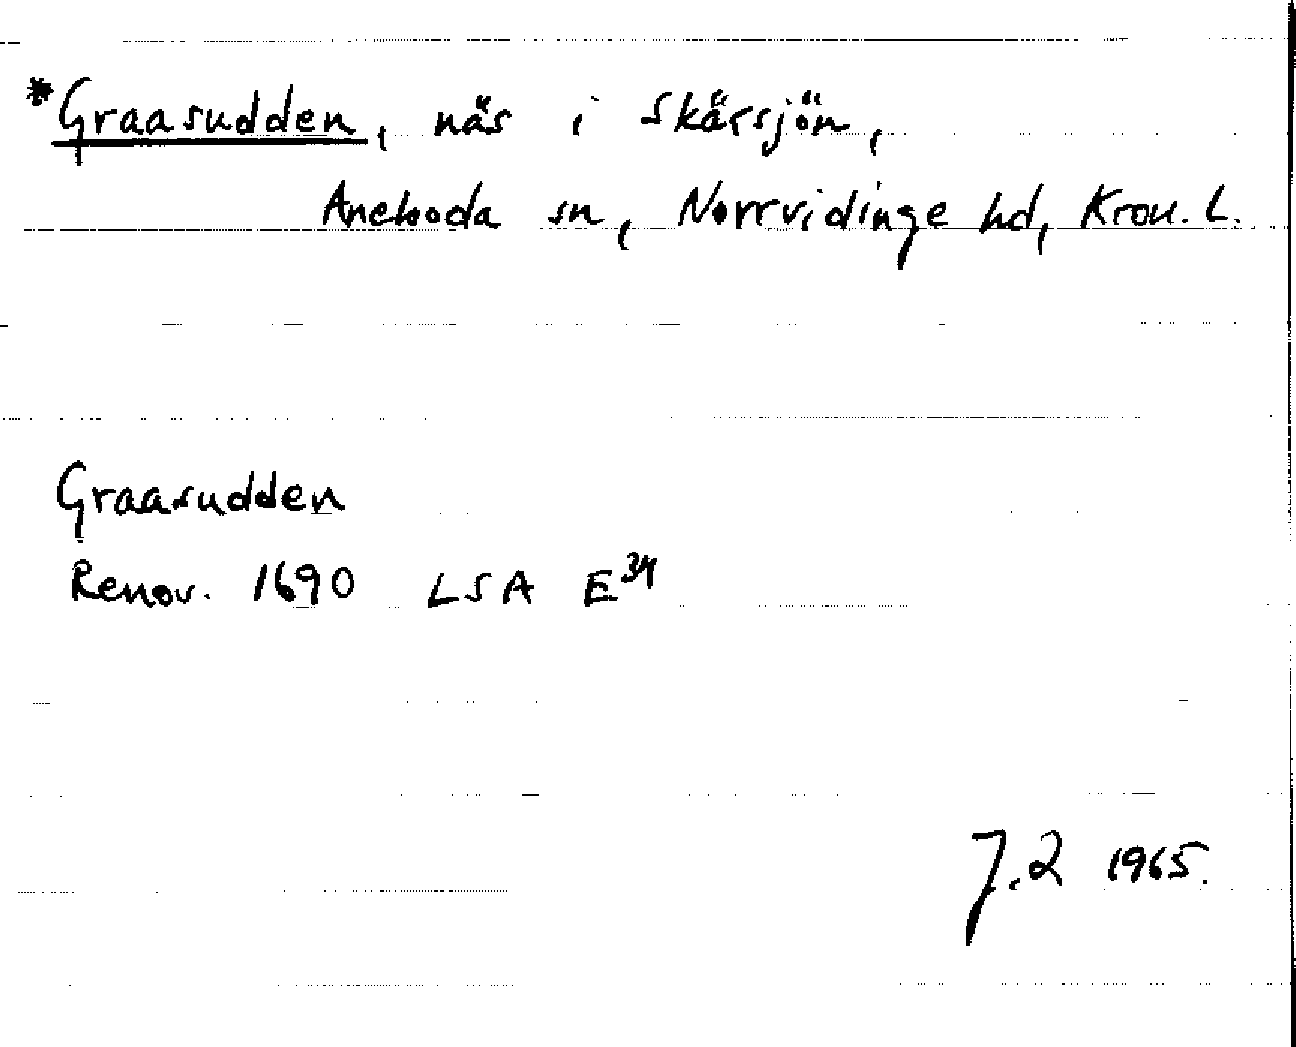 *Graasudden, näs i Skärsjön,
Aneboda sn, Norrvidinge hd, Kron. L.
Graasudden
Renov. 1690 LSA E³⁴
J.2 1965.